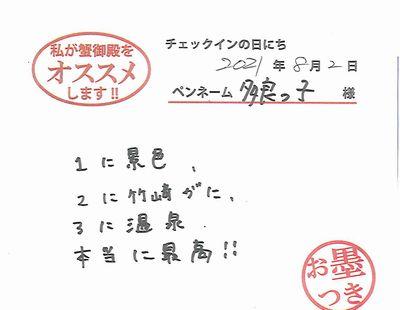 私が蟹御殿を
オススメ
します!!
チェックインの日にち
2021年8月2日
ペンネーム 多良っ子 様
1に景色、
2に竹崎がに、
3に温泉
本当に最高!!
お墨
つき